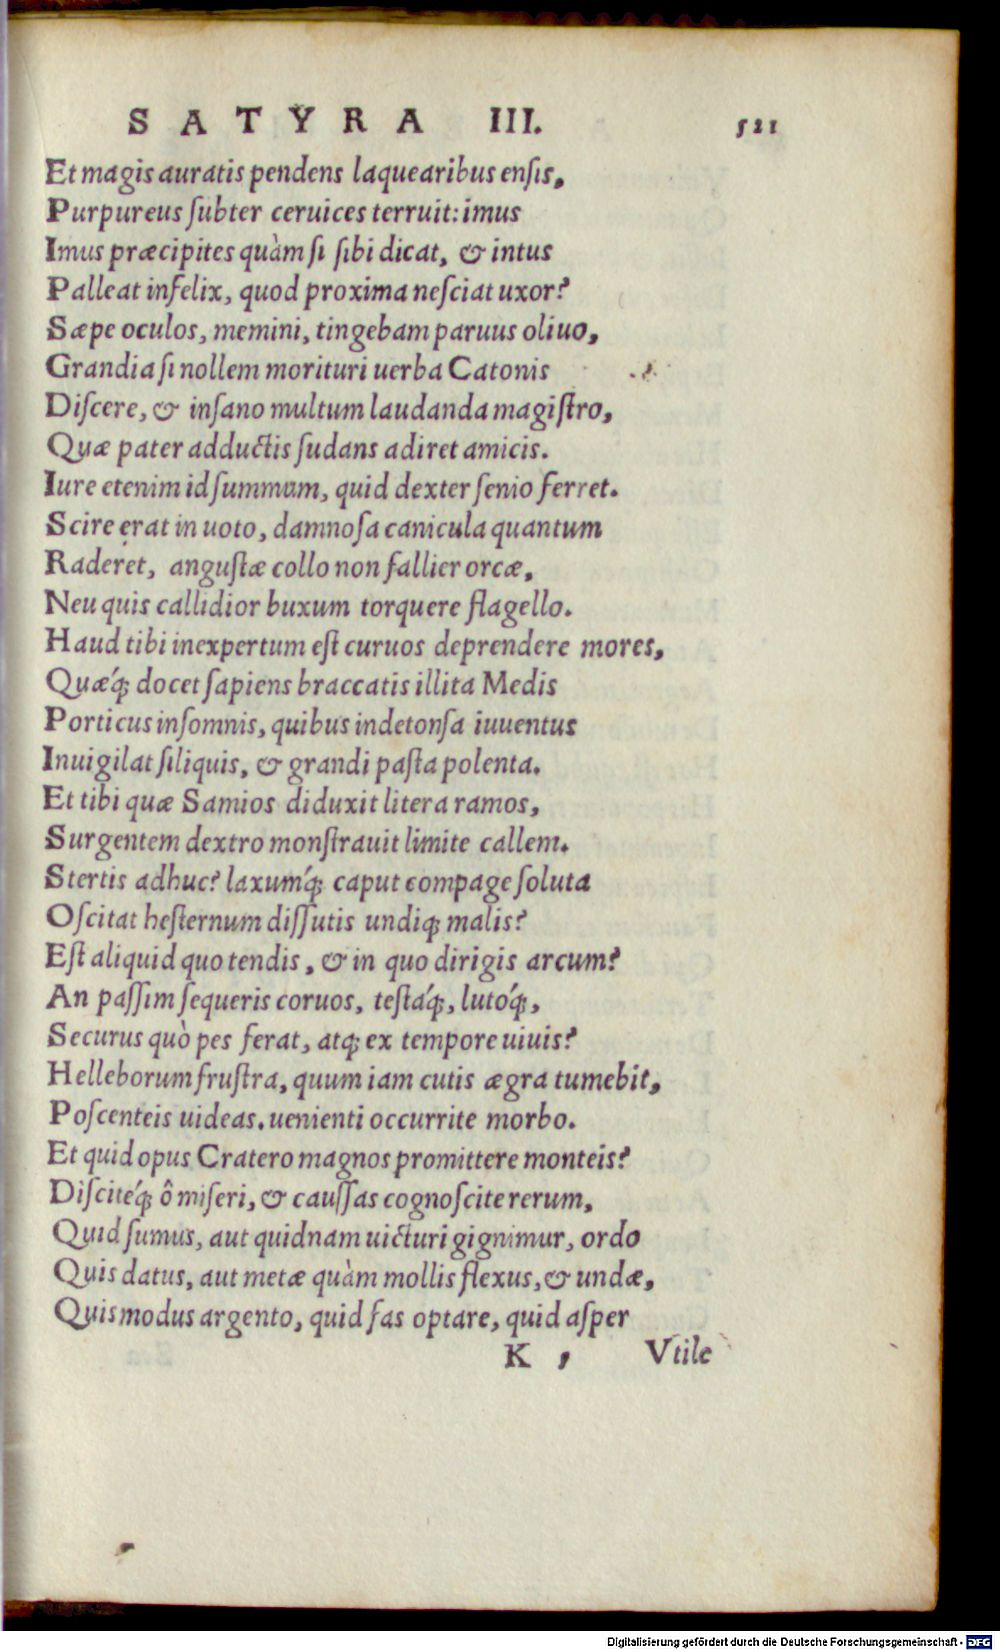 SATYRA III. 521
Et magis auratis pendens laquearibus ensis,
Purpureus subter ceruices terruit: imus
Imus præcipites quàm si sibi dicat, & intus
Palleat infelix, quod proxima nesciat uxor?
Sæpe oculos, memini, tingebam paruus oliuo,
Grandia si nollem morituri uerba Catonis
Discere, & insano multum laudanda magistro,
Quæ pater adductis sudans adiret amicis.
Iure etenim id summum, quid dexter senio ferret.
Scire erat in uoto, damnosa canicula quantum
Raderet, angustæ collo non fallier orcæ,
Neu quis callidior buxum torquere flagello.
Haud tibi inexpertum est curuos deprendere mores,
Quæq́; docet sapiens braccatis illita Medis
Porticus insomnis, quibus indetonsa iuuentus
Inuigilat siliquis, & grandi pasta polenta.
Et tibi quæ Samios diduxit litera ramos,
Surgentem dextro monstrauit limite callem.
Stertis adhuc? laxumq́; caput compage soluta
Oscitat hesternum dissutis undiq; malis?
Est aliquid quo tendis, & in quo dirigis arcum?
An passim sequeris coruos, testáq́;, lutoq́;,
Securus quò pes ferat, atq; ex tempore uiuis?
Helleborum frustra, quum iam cutis ægra tumebit,
Poscenteis uideas. uenienti occurrite morbo.
Et quid opus Cratero magnos promittere monteis?
Disciteq́; ô miseri, & caussas cognoscite rerum,
Quid sumus, aut quidnam uicturi gignimur, ordo
Quis datus, aut metæ quàm mollis flexus, & undæ,
Quis modus argento, quid fas optare, quid asper
K , Vtile
Digitalisierung gefördert durch die Deutsche Forschungsgemeinschaft - DFG